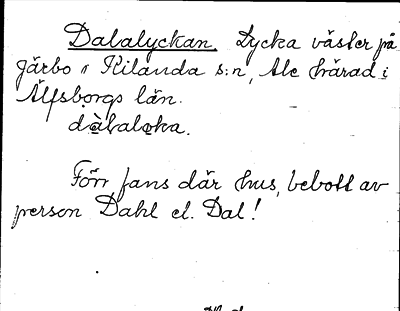 Dalalyckan. Lycka väster på
gärbo i Kilanda s:n, Ale härad i
Älfsborgs län.
dàlalǫka.
Förr fans där hus, bebott av
person Dahl el. Dal!